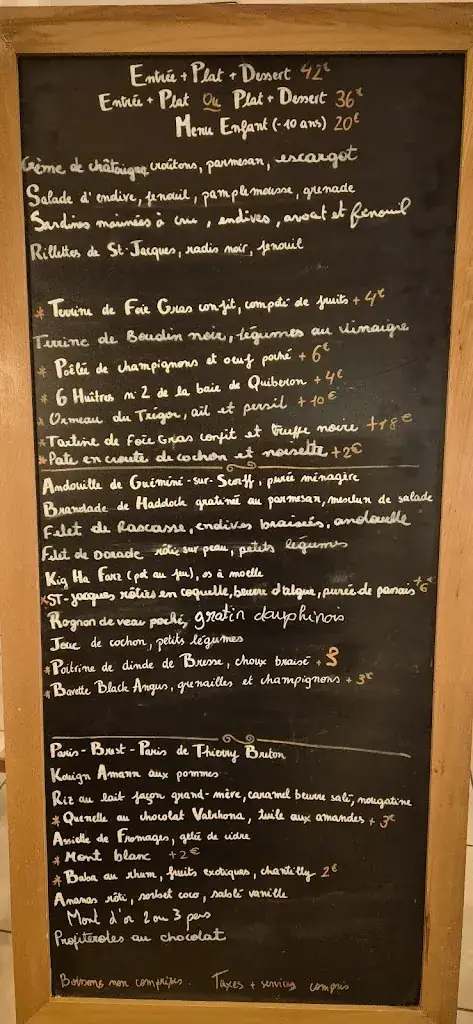 Entrée + Plat + Dessert 42€
Entrée + Plat Ou Plat + Dessert 36€
Menu Enfant (-10 ans) 20€
Crème de châtaigne, croûtons, parmesan, escargot
Salade d'endive, fenouil, pamplemousse, grenade
Sardines marinées à cru, endives, avocat et fenouil
Rillettes de St-Jacques, radis noir, fenouil
* Terrine de Foie Gras confit, compoté de fruits + 4€
Terrine de Boudin noir, légumes au vinaigre
* Poêlée de champignons et oeuf poché + 6€
* 6 Huîtres n°2 de la baie de Quiberon + 4€
* Ormeau du Trégor, ail et persil + 10€
* Tartine de Foie Gras confit et truffe noire + 18€
* Pate en croute de cochon et noisette + 2€
Andouille de Guéméné-sur-Scorff, purée ménagère
Brandade de Haddock gratinée au parmesan, mesclun de salade
Filet de Rascasse, endives braisées, andouille
Filet de Dorade rôtie sur peau, petits légumes
Kig Ha Farz (pot au feu), os à moelle
* ST-Jacques rôties en coquille, beurre d'algue, purée de panais + 6€
Rognon de veau poché, gratin dauphinois
Joue de cochon, petits légumes
* Poitrine de dinde de Bresse, choux braisé + 8
* Bavette Black Angus, grenailles et champignons + 3€
Paris-Brest-Paris de Thierry Breton
Kouign Amann aux pommes
Riz au lait façon grand-mère, caramel beurre salé, nougatine
* Quenelle au chocolat Valrhona, tuile aux amandes + 3€
Assiette de Fromages, gelée de cidre
* Mont blanc + 2€
* Baba au rhum, fruits exotiques, chantilly 2€
Ananas rôti, sorbet coco, sablé vanille
Mont d'or 2 ou 3 pers
Profiteroles au chocolat
Boissons non comprises. Taxes + services compris